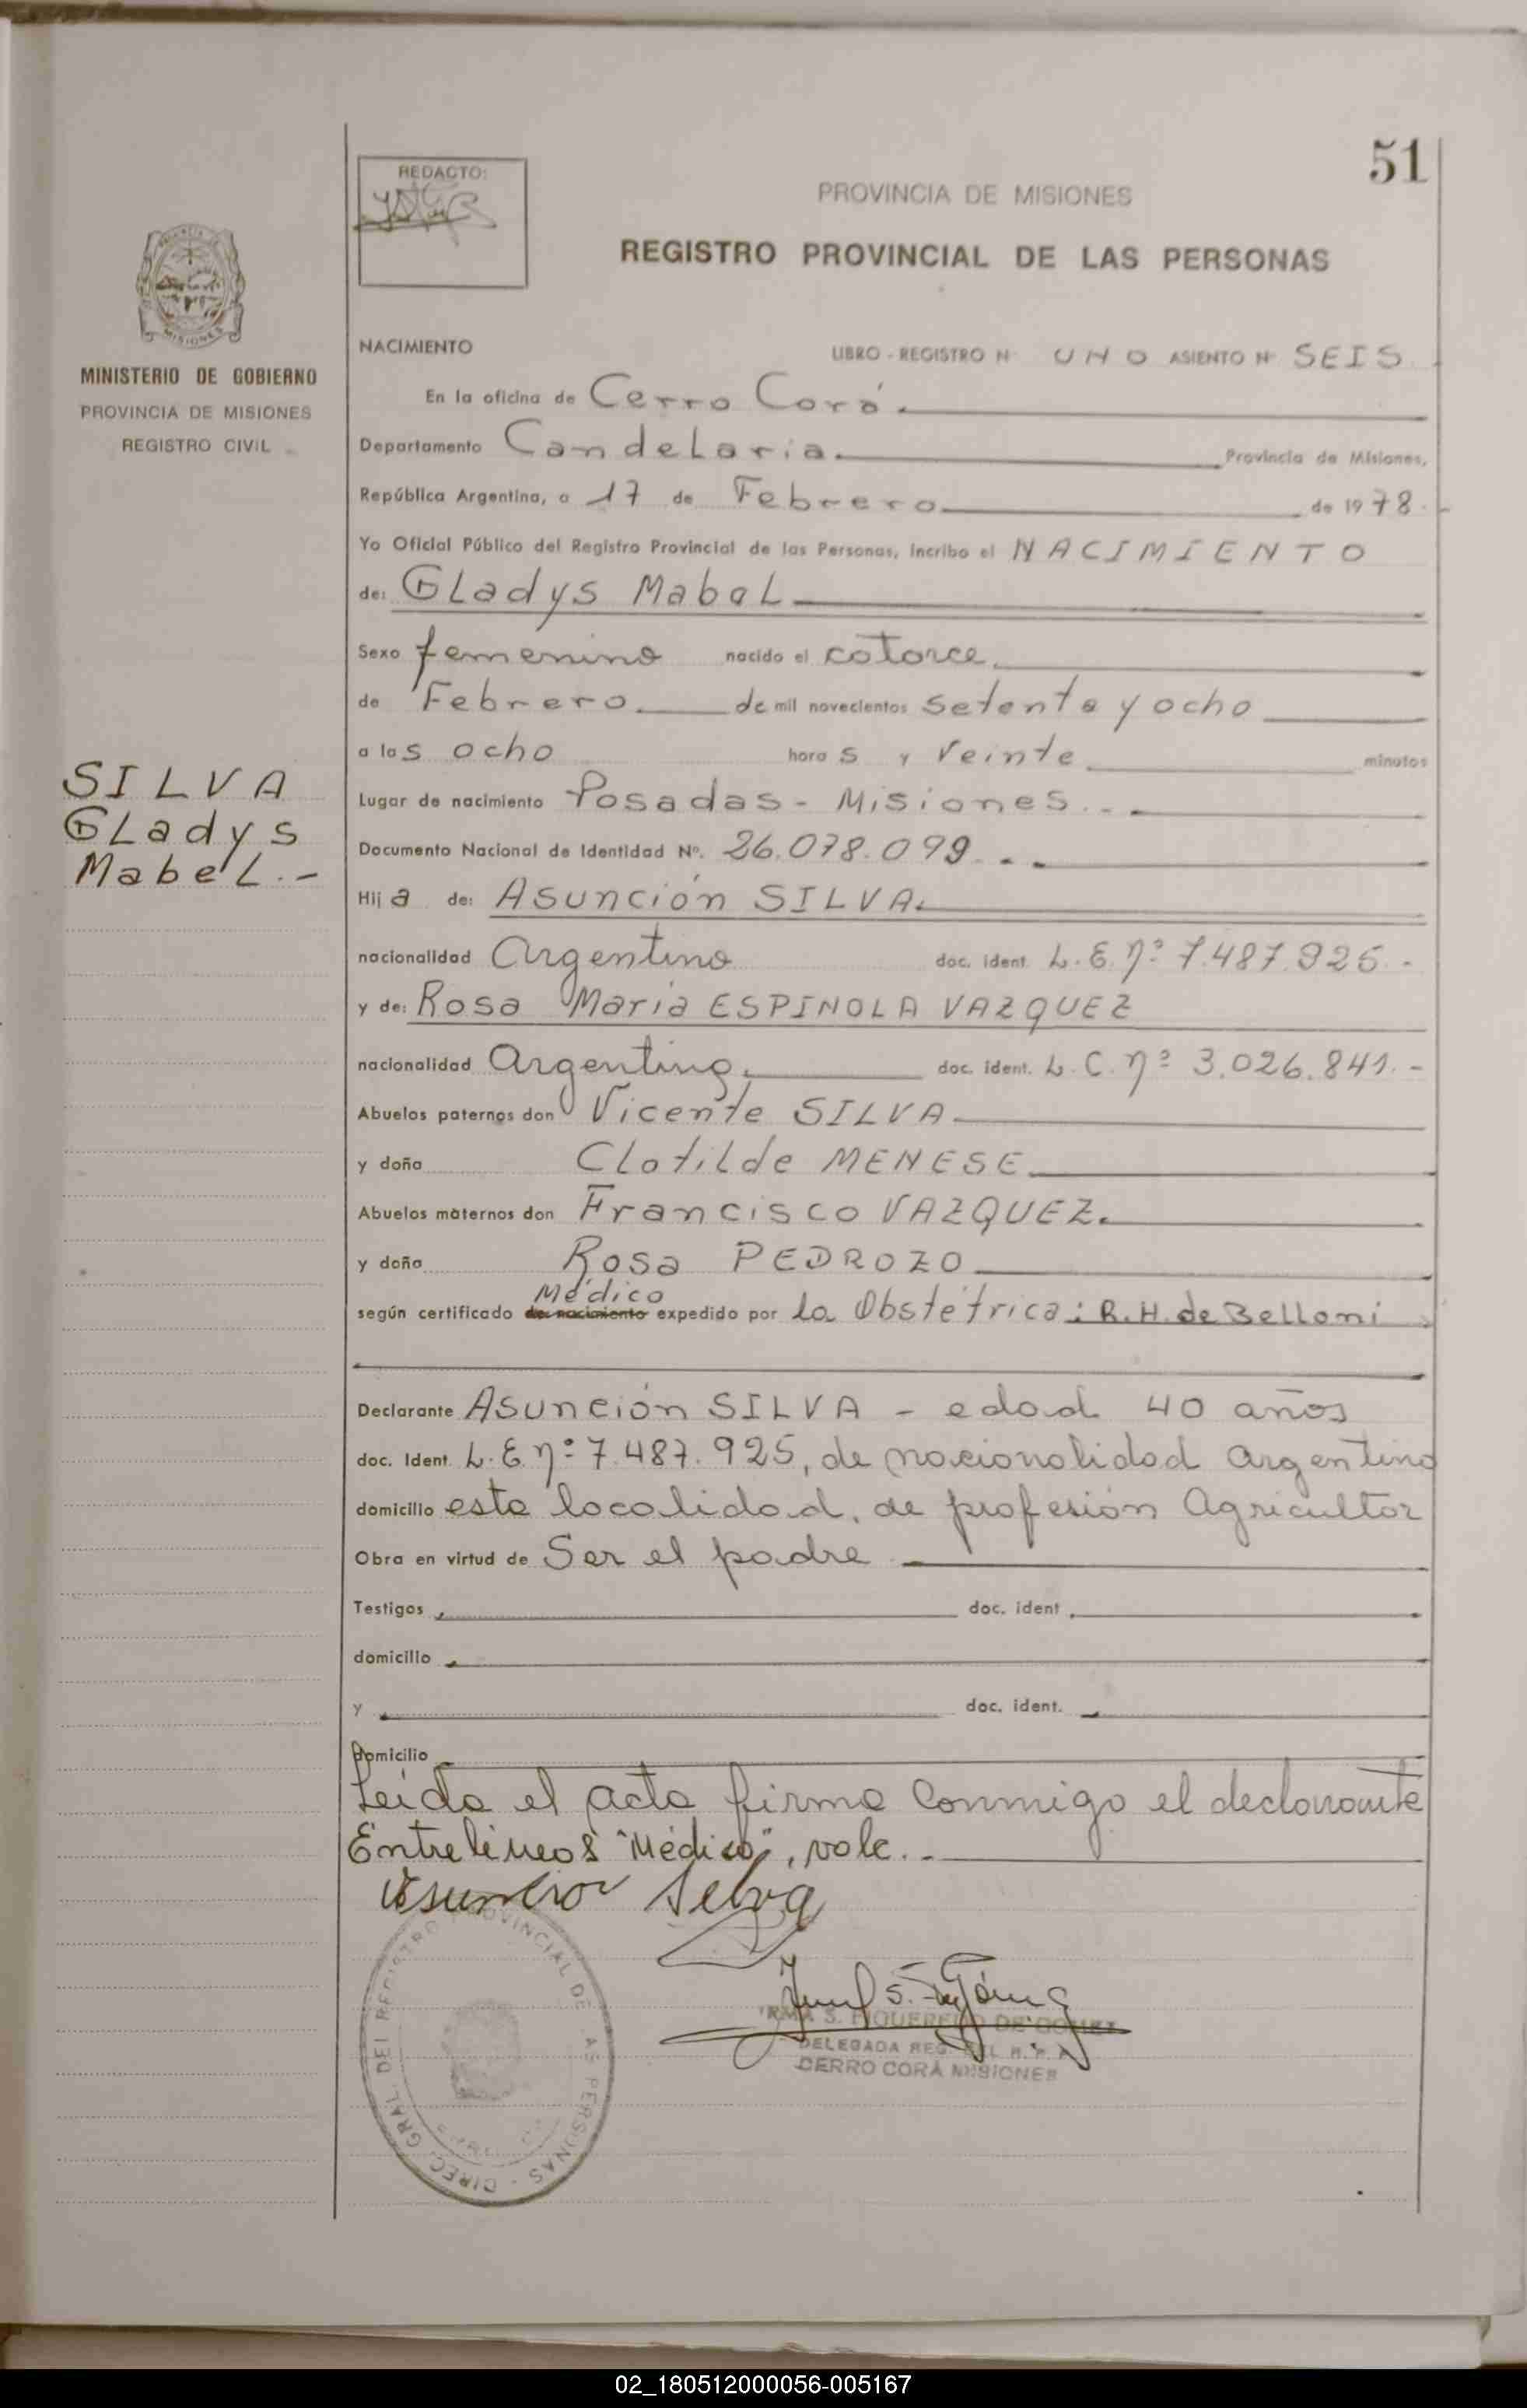 51
REDACTO:
PROVINCIA DE MISIONES
REGISTRO PROVINCIAL DE LAS PERSONAS
MISIONES
MINISTERIO DE GOBIERNO
PROVINCIA DE MISIONES
REGISTRO CIVIL
SILVA
GLadys
MabeL.-
NACIMIENTO LIBRO - REGISTRO Nº UNO ASIENTO Nº SEIS
En la oficina de Cerro Corá.
Departamento CandeLaria. Provincia de Misiones,
República Argentina, a 17 de Febrero de 1978.-
Yo Oficial Público del Registro Provincial de las Personas, incribo el NACIMIENTO
de: GLadys MabeL
Sexo femenino nacido el catorce
de Febrero. de mil novecientos setenta y ocho
a las ocho horas y veinte minutos
Lugar de nacimiento Posadas - Misiones.-
Documento Nacional de Identidad Nº. 26.078.099.-
Hija de: Asunción SILVA.
nacionalidad Argentino doc. ident. L.E. nº 7.487.925.-
y de: Rosa María ESPINOLA VAZQUEZ
nacionalidad Argentina. doc. ident. L.C. nº 3.026.841.-
Abuelos paternos don Vicente SILVA
y doña CLotilde MENESE
Abuelos maternos don Francisco VAZQUEZ.
y doña Rosa PEDROZO
Médico
según certificado de nacimiento expedido por la Obstétrica: R.H. de Belloni
Declarante Asunción SILVA - edad 40 años
doc. Ident. L.E. nº 7.487.925, de nacionalidad argentino
domicilio esta localidad, de profesión Agricultor
Obra en virtud de Ser el padre
Testigos doc. ident.
domicilio
y doc. ident.
domicilio
Leída el acta firma conmigo el declarante
Entrelíneas "Médico", vale.-
Asuncion Selva
IRMA S. FIQUEREDO DE GOMEZ
DELEGADA REG.
CERRO CORÁ MISIONES
DIREC. GRAL. DEL REGISTRO PROVINCIAL DE LAS PERSONAS
02_180512000056-005167